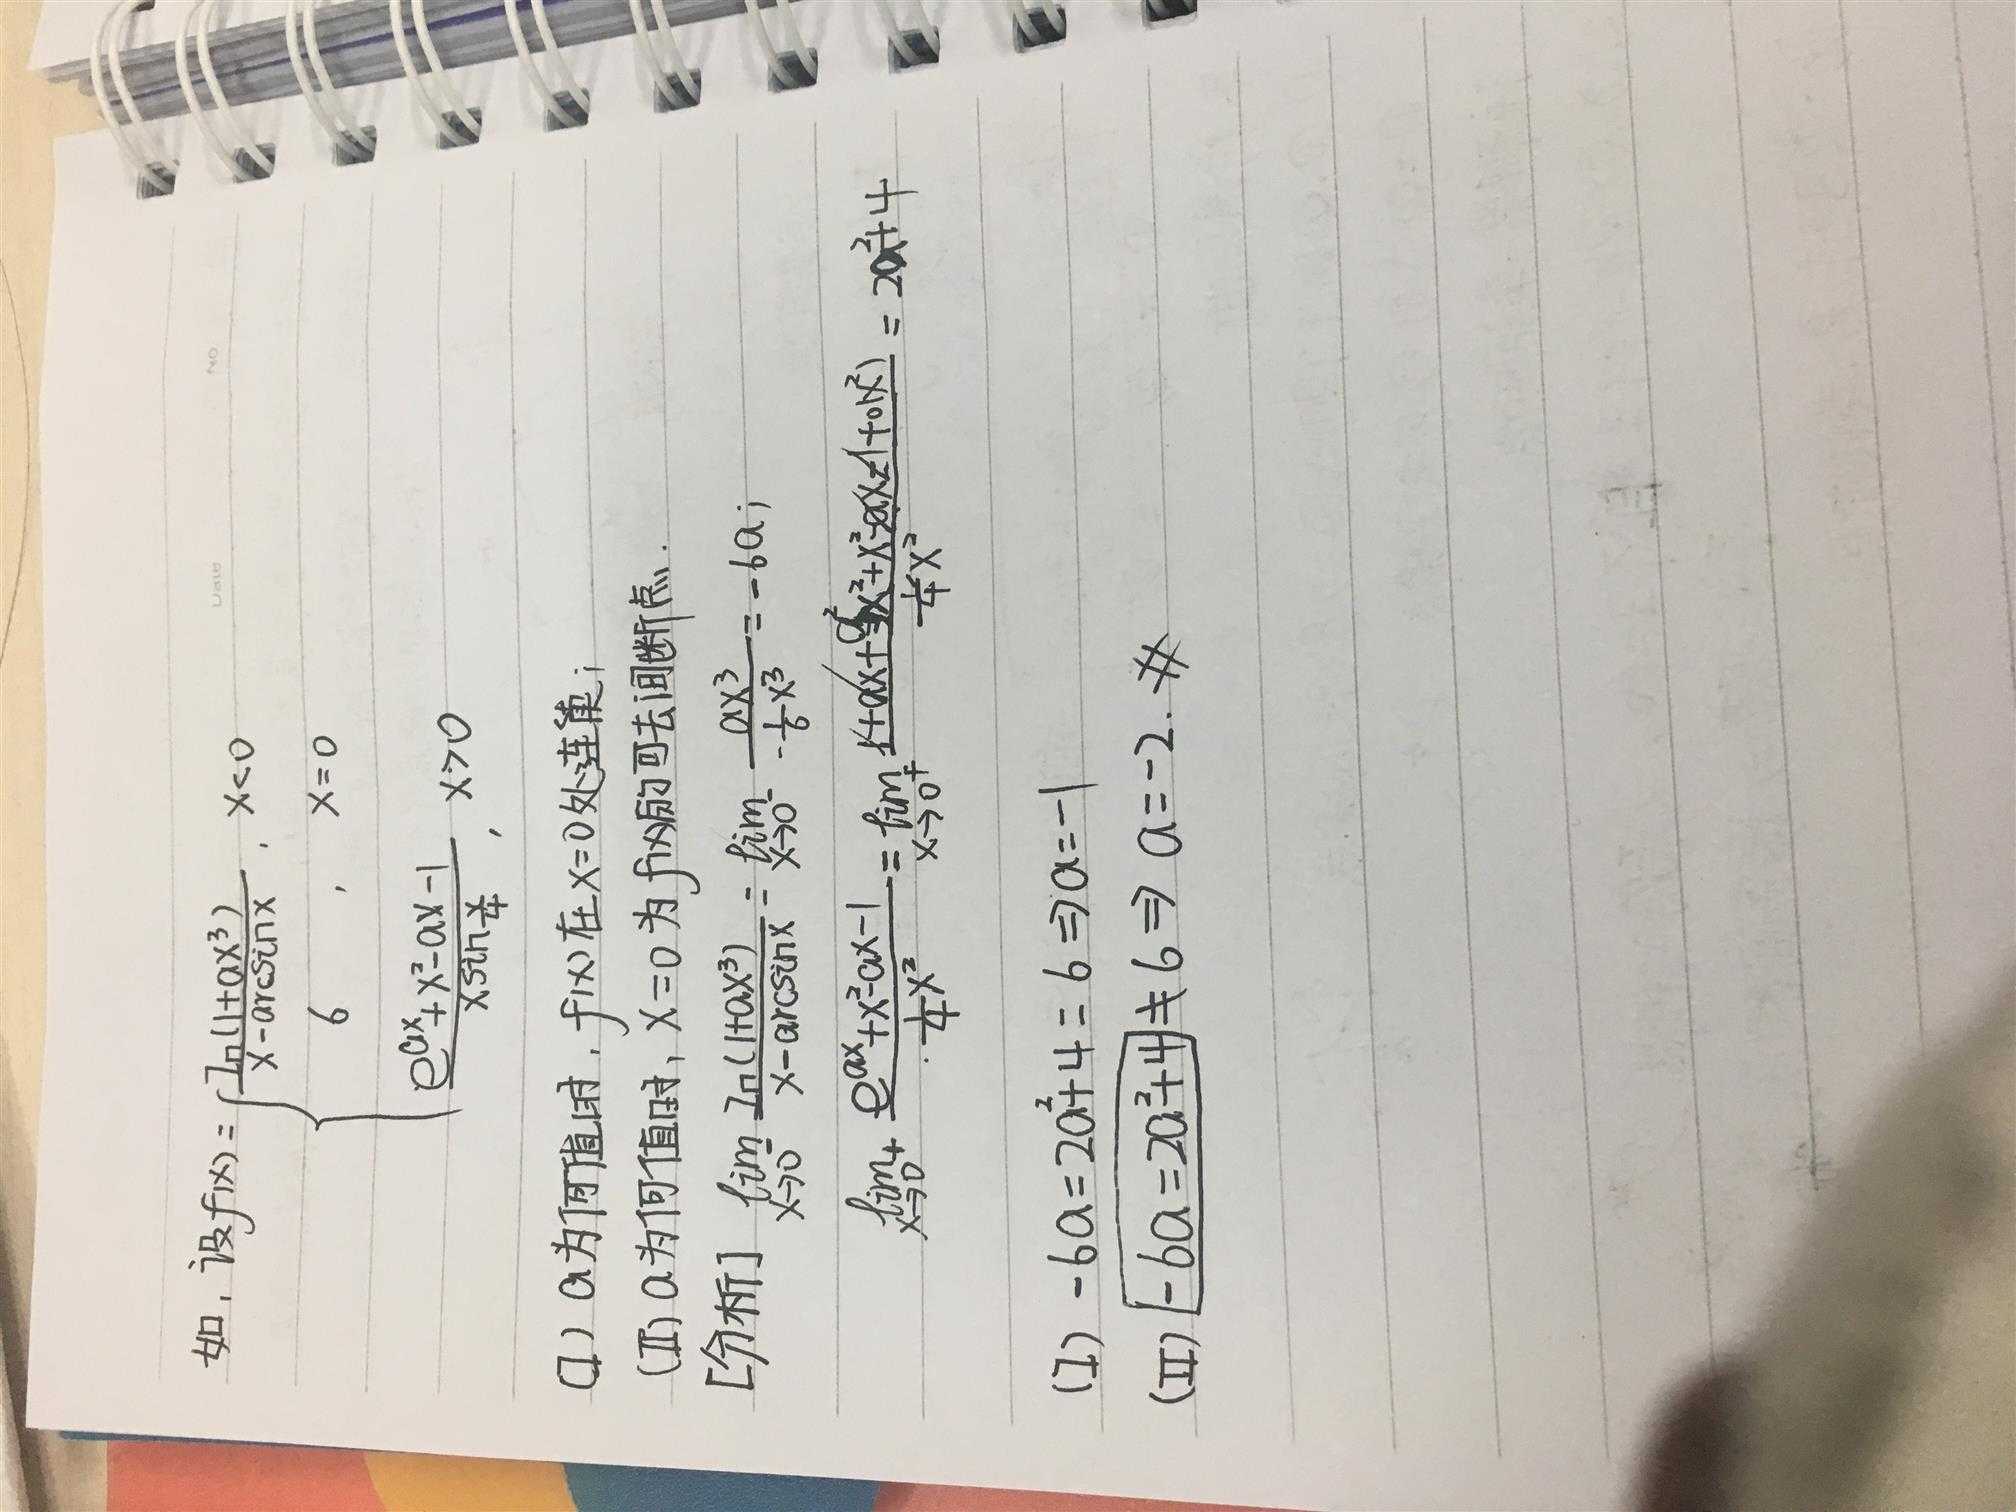 Date No
如，设f(x)={ ln(1+ax³)/(x-arcsinx), x<0
6 , x=0
(e^{ax}+x²-ax-1)/(x sin x/4), x>0
(I) a为何值时, f(x)在x=0处连续;
(II) a为何值时, x=0为f(x)的可去间断点.
[分析] lim_{x→0⁻} ln(1+ax³)/(x-arcsinx) = lim_{x→0⁻} ax³/(-1/6 x³) = -6a;
lim_{x→0⁺} (e^{ax}+x²-ax-1)/(1/4 x²) = lim_{x→0⁺} (1+ax+a²/2 x²+x²-ax-1+o(x²))/(1/4 x²) = 2a²+4
(I) -6a=2a²+4=6⇒a=-1
(II) -6a=2a²+4≠6⇒a=-2. #